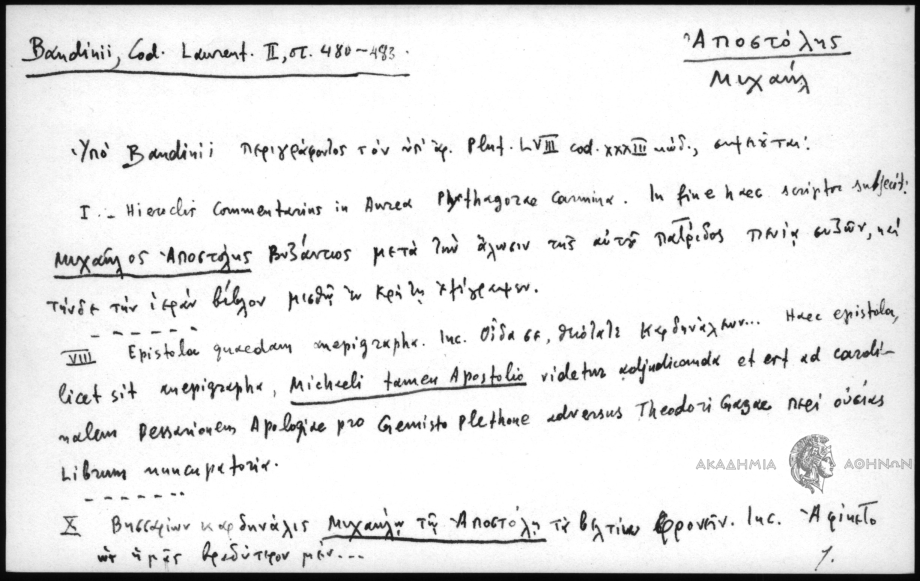 Bandinii, Cod. Laurent. II, στ. 480-483.
Ἀποστόλης
Μιχαήλ
Ὑπό Bandinii περιγράφοντος τόν ὑπ' ἀρ. Plut. LVIII cod. XXXIII κώδ., σημειοῦται:
I. - Hieroclis Commentarius in Aurea Pythagorae Carmina. In fine haec scriptor subjecit:
Μιχαῆλος Ἀποστόλης Βυζάντιος μετὰ τὴν ἅλωσιν τῆς αὐτοῦ πατρίδος πενίᾳ συζῶν, καί
τήνδε τὴν ἱερὰν βίβλον μισθῷ ἐν Κρήτῃ ἐξέγραψεν.
VIII Epistola quaedam anepigrapha. Inc. Οἶδα σε, θειότατε Καρδηνάλεων... Haec epistola,
licet sit anepigrapha, Michaeli tamen Apostolio videtur adjudicanda et est ad cardi-
nalem Bessarionem Apologiae pro Gemisto Plethone adversus Theodori Gazae περὶ οὐσίας
Librum nuncupatoria.
X Βησσαρίων καρδηνάλις Μιχαήλῳ τῷ Ἀποστόλῃ τὸ βελτίω φρονεῖν. Inc. Ἀφίκετο
ὡς ἡμᾶς βραδύτερον μέν...
ΑΚΑΔΗΜΙΑ ΑΘΗΝΩΝ